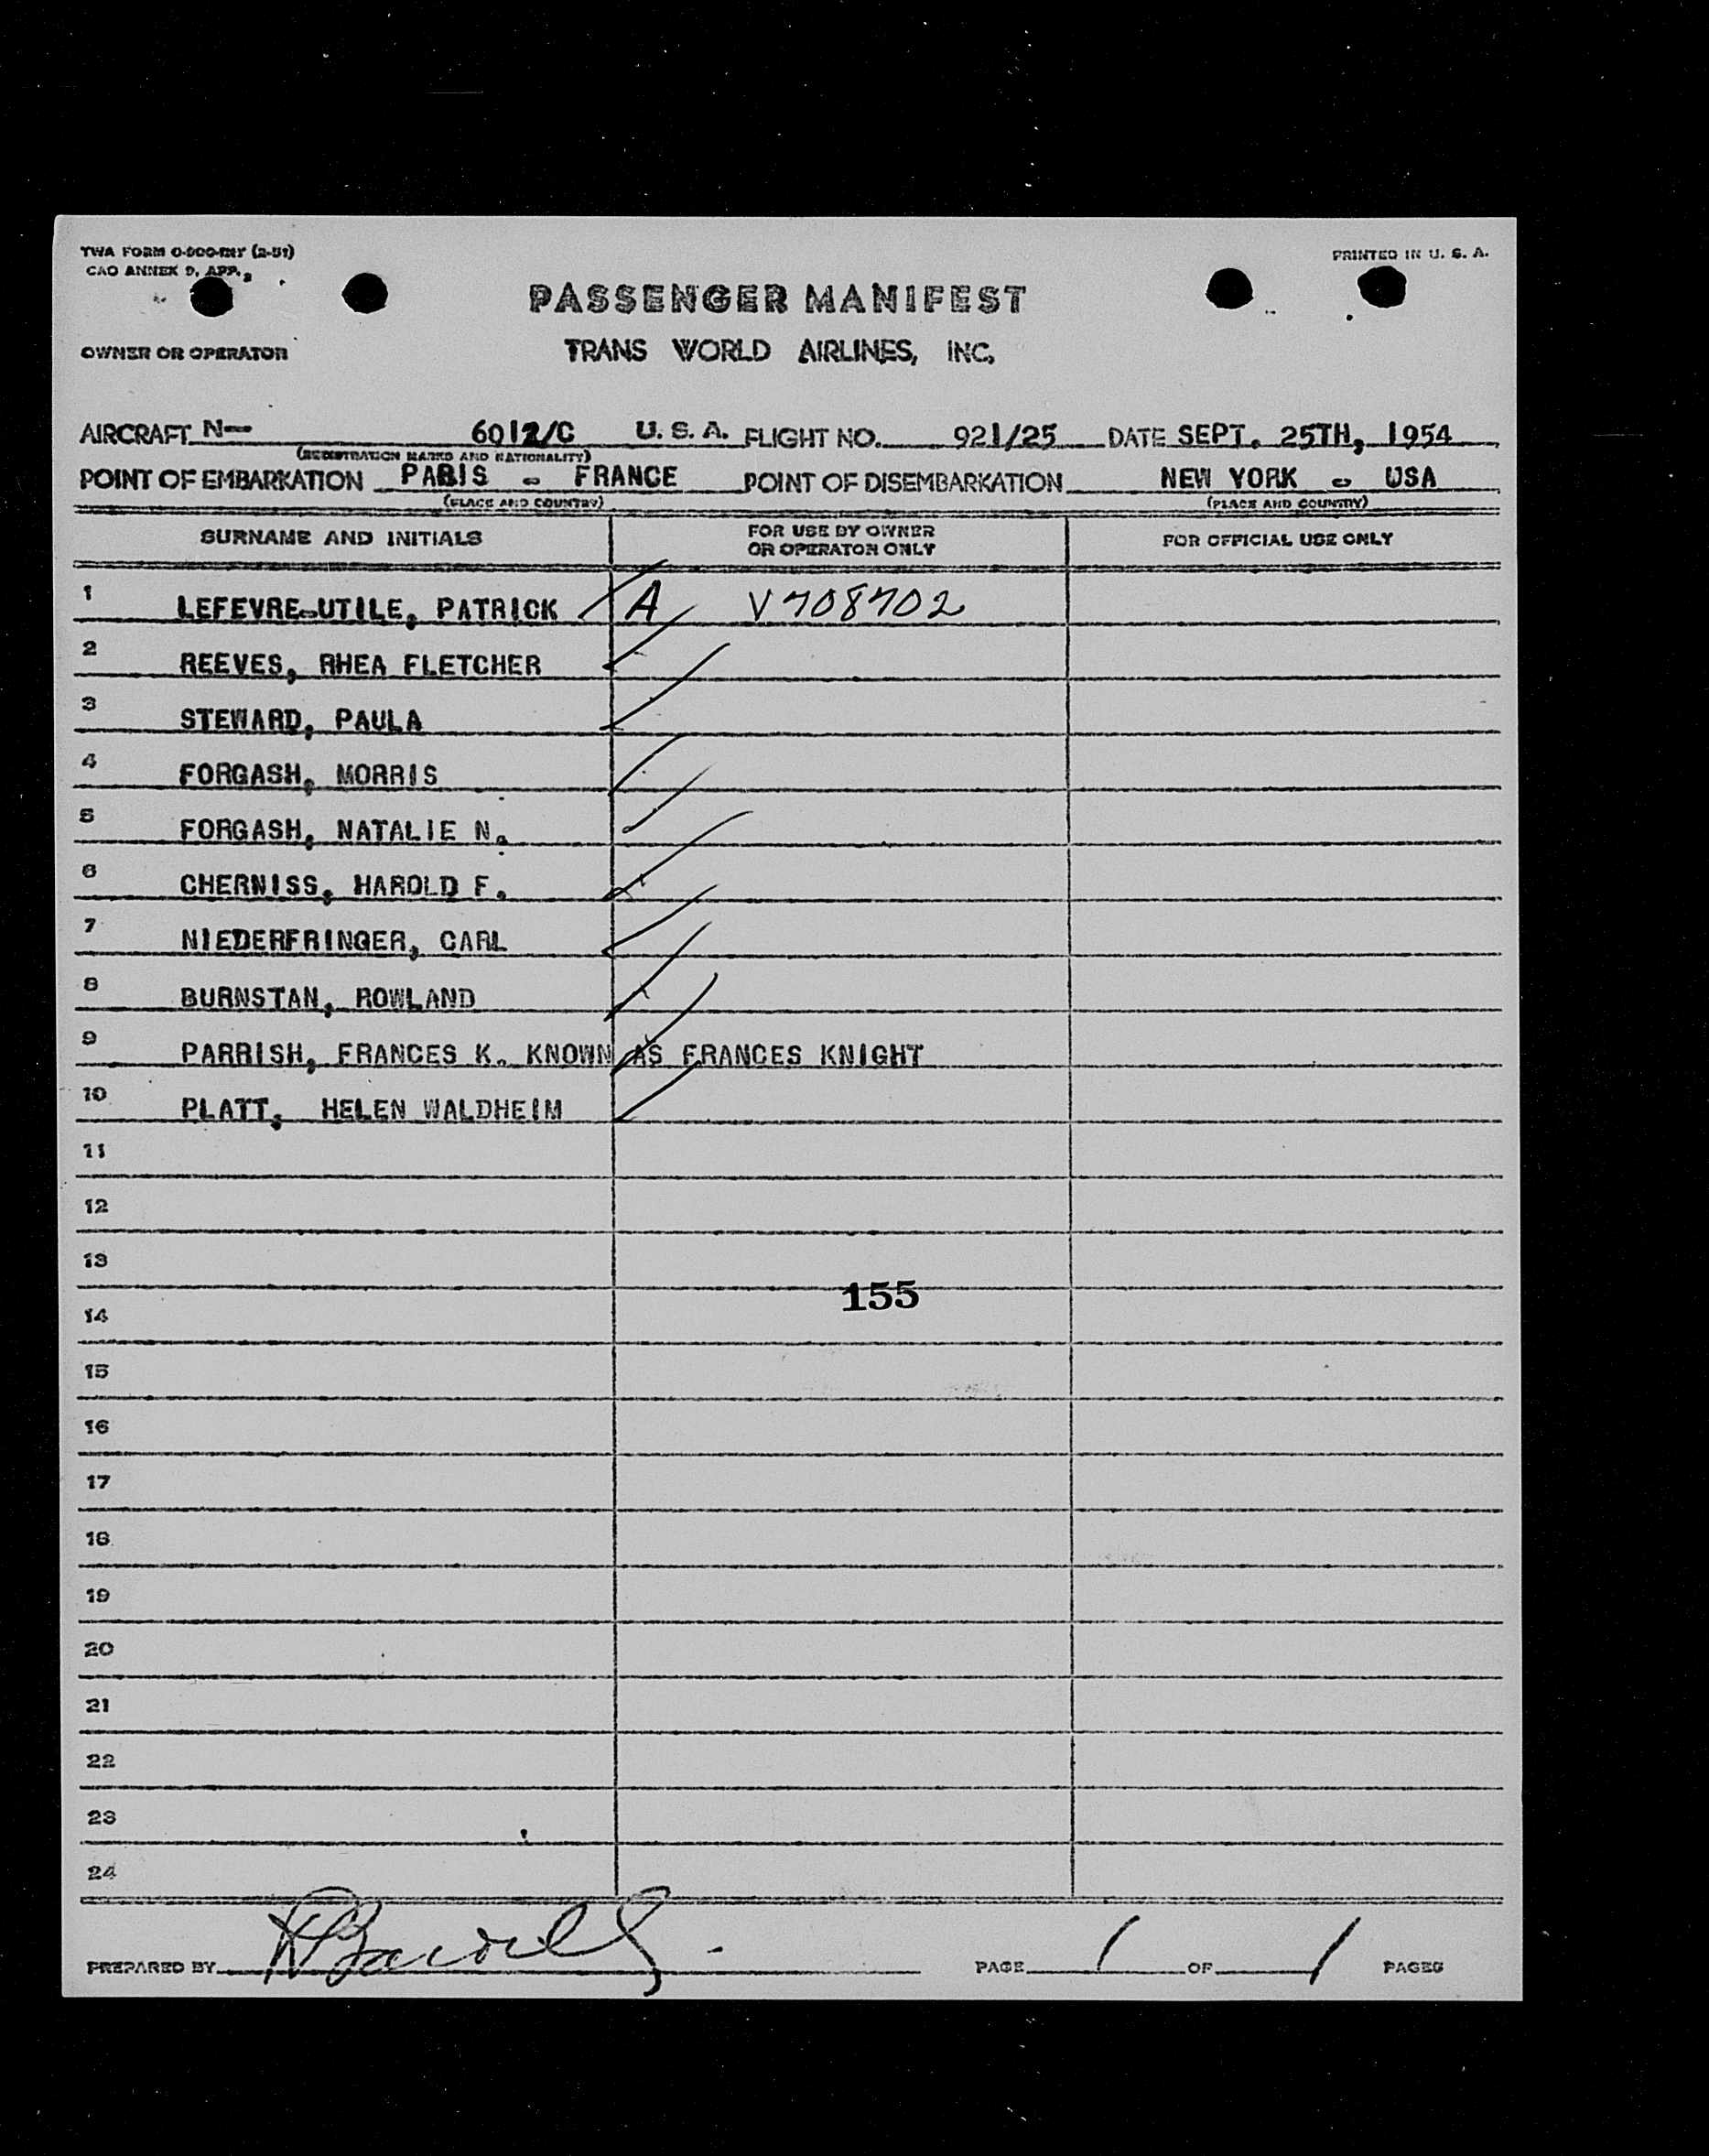 TWA FORM (2-51) PRINTED IN U. S. A.
CAO ANNEX 9, APP. 3
PASSENGER MANIFEST
OWNER OR OPERATOR TRANS WORLD AIRLINES, INC.
AIRCRAFT N- 6012/C U. S. A. FLIGHT NO. 921/25 DATE SEPT. 25TH, 1954
(REGISTRATION MARKS AND NATIONALITY)
POINT OF EMBARKATION PARIS - FRANCE POINT OF DISEMBARKATION NEW YORK - USA
(PLACE AND COUNTRY) (PLACE AND COUNTRY)
SURNAME AND INITIALS FOR USE BY OWNER OR OPERATOR ONLY FOR OFFICIAL USE ONLY
1 LEFEVRE-UTILE, PATRICK A V708702
2 REEVES, RHEA FLETCHER
3 STEWARD, PAULA
4 FORGASH, MORRIS
5 FORGASH, NATALIE N.
6 CHERNISS, HAROLD F.
7 NIEDERFRINGER, CARL
8 BURNSTAN, ROWLAND
9 PARRISH, FRANCES K. KNOWN AS FRANCES KNIGHT
10 PLATT, HELEN WALDHEIM
11
12
13
155
14
15
16
17
18
19
20
21
22
23
24
PREPARED BY PAGE 1 OF 1 PAGES